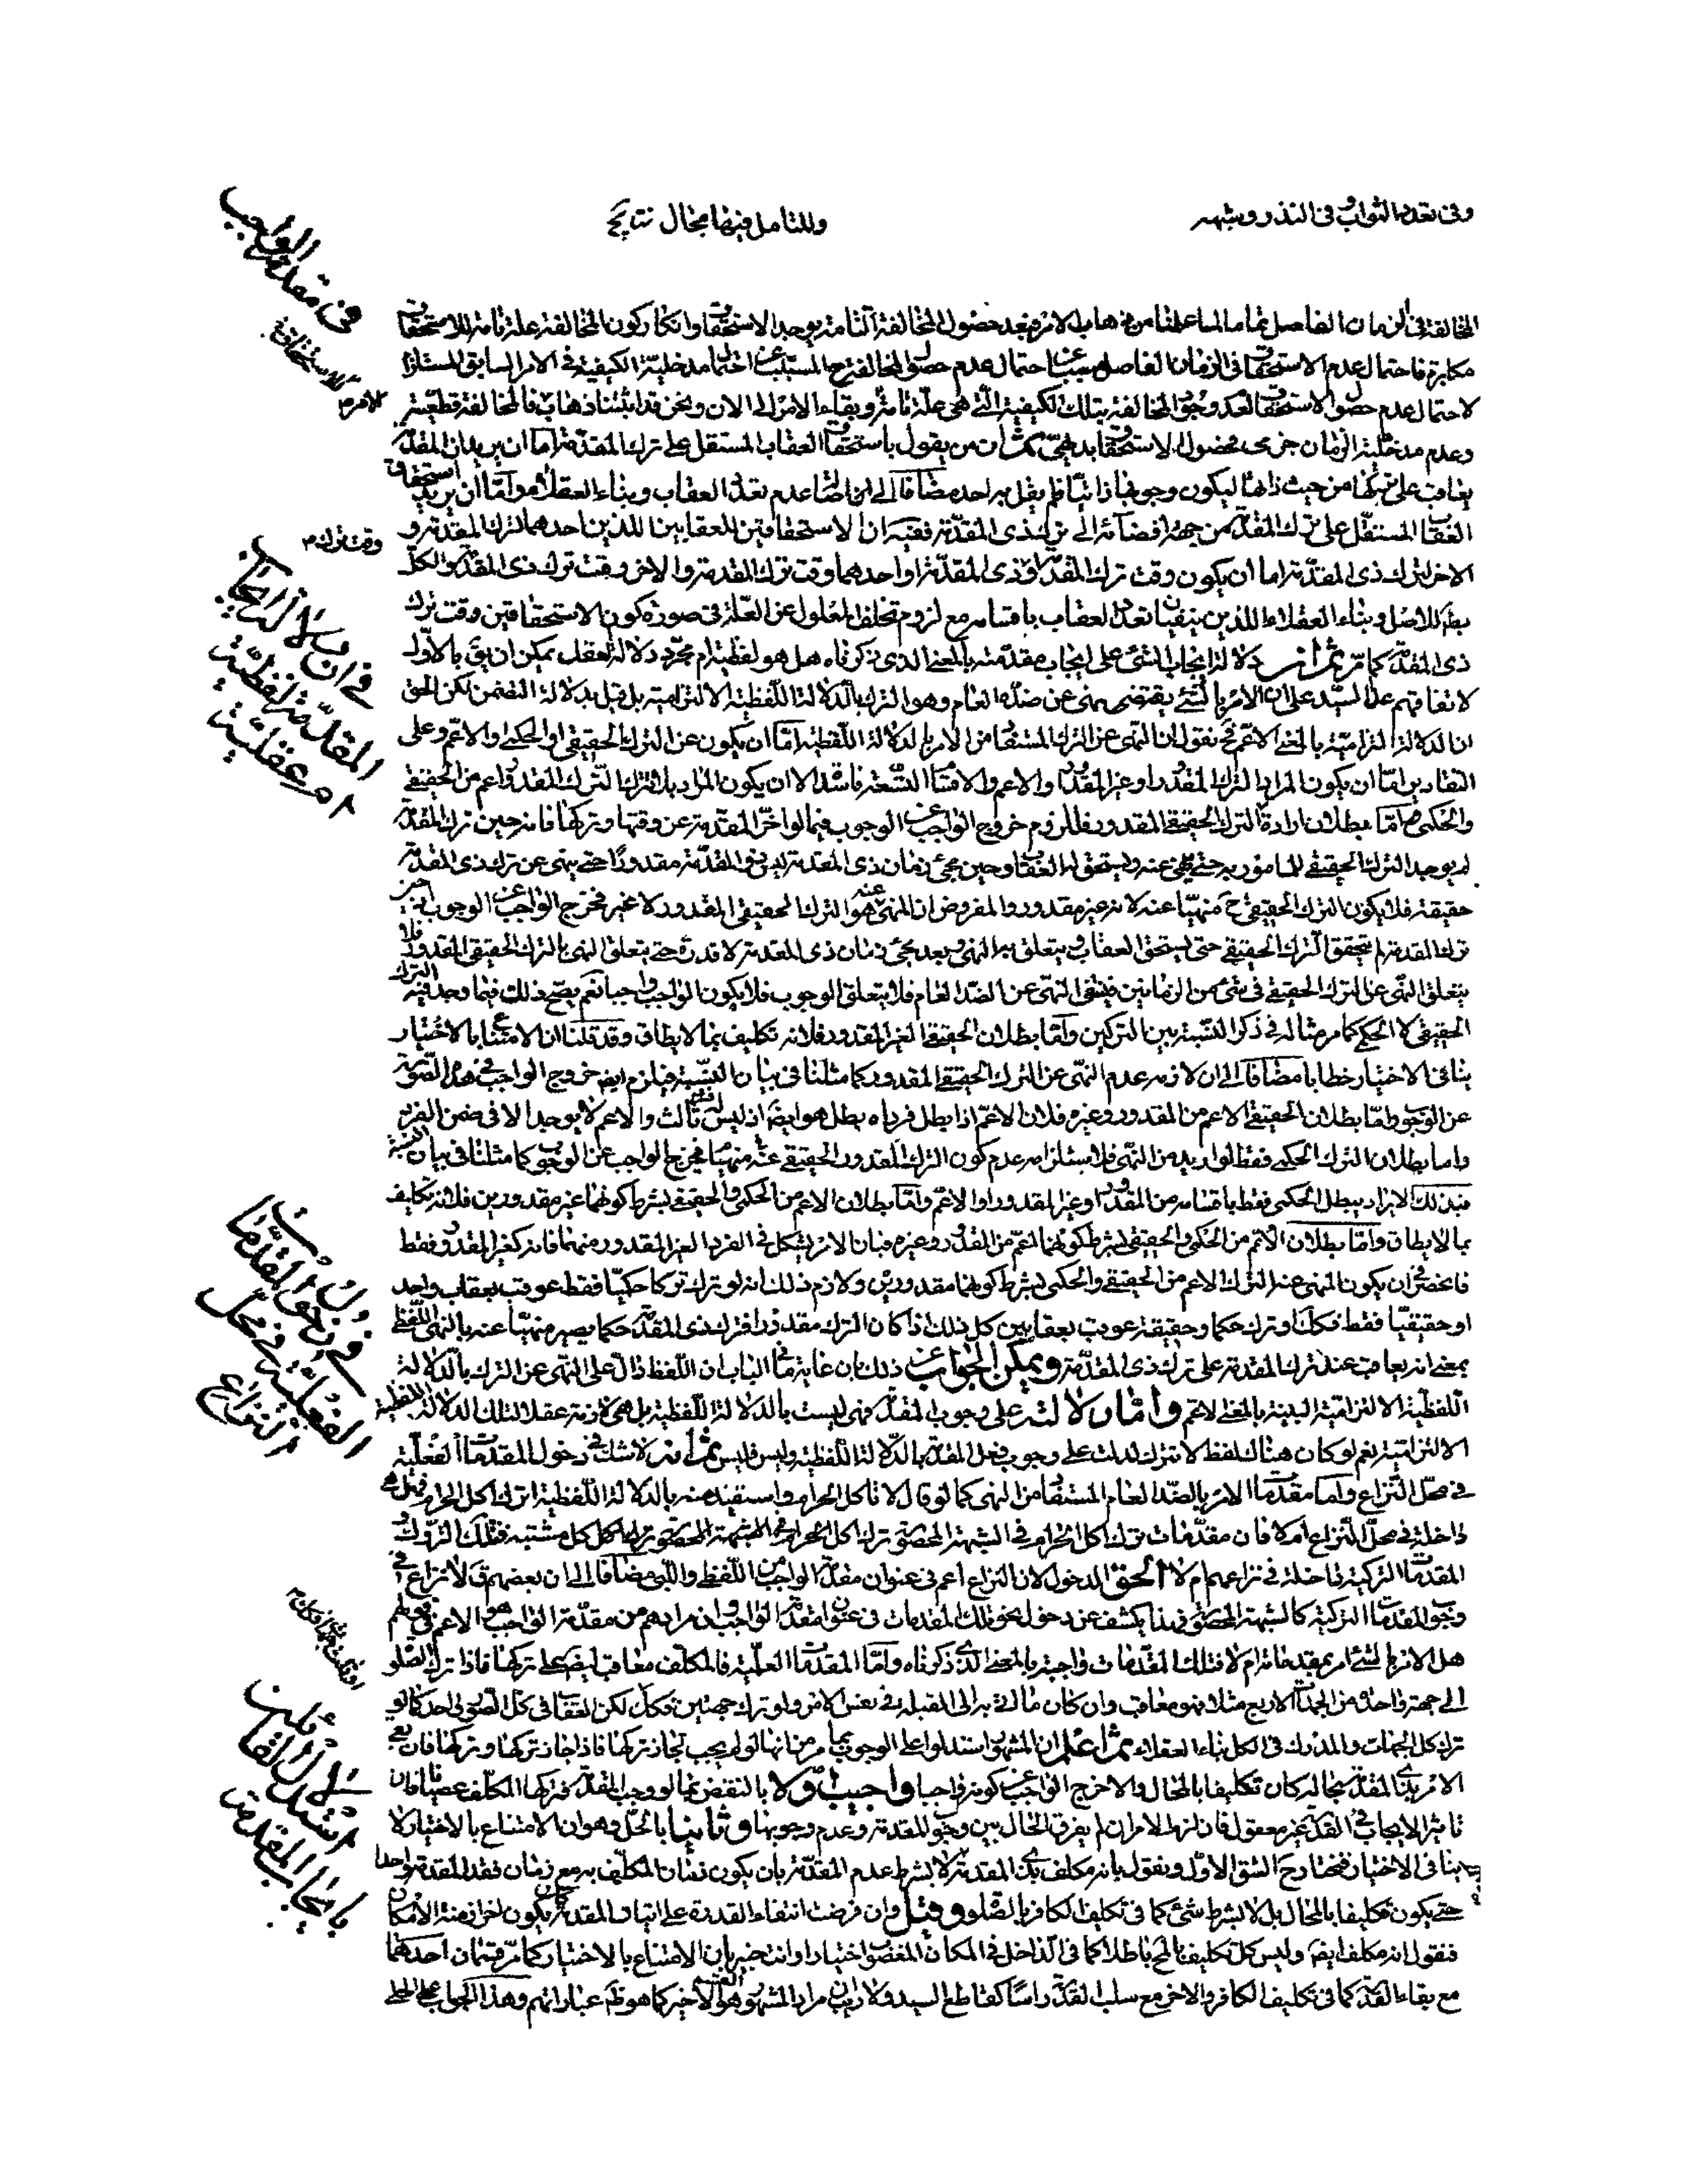 وفى تعدد الثواب فى النذر وشبهه
وللتأمل فيها مجال نتايج
فى مقدمة الواجب
المخالفة فى الزمان الفاصل بعد حصول المخالفة التامة يوجد الاستحقاق وانكار كون المخالفة علة تامة للاستحقاق
مكابرة فاحتمال عدم الاستحقاق فى الزمان الفاصل احتمال عدم حصول المخالفة مدخلية الكيفية فى الامر السابق
لاحتمال عدم حصول الاستحقاق بعد وجود المخالفة بتلك الكيفية التى هى علة تامة وبقاء الامر الى الان ونحن قد اثبتنا ذهابه فالمخالفة قطعية
وعدم مدخلية الزمان لحصول الاستحقاق بديهى ثم ان من يقول باستحقاق العقاب المستقل على ترك المقدمة اما ان يريد ان المقدمة
يعاقب على تركها من حيث ذاتها ليكون وجوبها ذاتيا فلم يقل به احد مضافا الى اصالة عدم تعدد العقاب وبناء العقلاء واما ان يريد استحقاق
العقاب المستقل على ترك المقدمة من جهة افضائه الى ترك ذى المقدمة ففيه ان الاستحقاقين للعقابين اللذين احدهما لترك المقدمة و
الاخر لترك ذى المقدمة اما ان يكون وقت ترك المقدمة او ذى المقدمة او احدهما وقت ترك المقدمة والاخر وقت ترك ذى المقدمة والكل
بط للاصل وبناء العقلاء اللذين ينفيان تعدد العقاب باقسامه مع لزوم تخلف المعلول عن العلة فى صورة كون الاستحقاقين وقت ترك
ذى المقدمة كما مر ثم انه دلالة ايجاب الشئ على ايجاب مقدمته بالمعنى الذى ذكرناه هل هو لفظية ام مجرد دلالة العقل يمكن ان يق بالاول
لاتفاقهم على ان الامر بالشئ يقتضى نهى عن ضده العام وهو الترك بالدلالة اللفظية الالتزامية بل قيل بدلالة التضمن لكن الحق
ان الدلالة التزامية بالمعنى الاعم فح نقول ان النهى عن الترك المستفاد من الامر بالدلالة اللفظية اما ان يكون عن الترك الحقيقى او الحكمى او الاعم وعلى
التقادير اما ان يكون المراد الترك المقدور او غير المقدور او الاعم والاقسام التسعة فاسدة الا ان يكون المراد بالترك الترك المقدور الاعم من الحقيقى
والحكمى اما بطلان ارادة الترك الحقيقى المقدور فللزوم خروج الواجب عن الوجوب فيما لو اخر المقدمة عن وقتها وتركها فانه حين ترك المقدمة
لم يوجد الترك الحقيقى للمامور به حتى ينهى عنه ويستحق العقاب وحين مجئ زمان ذى المقدمة لم يبق المقدمة مقدورا حتى ينهى عن ترك ذى المقدمة
حقيقة فلا يكون الترك الحقيقى ح منهيا عنه لانه غير مقدور والمفروض ان المنهى عنه هو الترك الحقيقى المقدور لا غير فخرج الواجب عن الوجوب حين
ترك المقدمة لم يتحقق الترك الحقيقى حتى يستحق العقاب ويتعلق به النهى وبعد مجئ زمان ذى المقدمة لا قدرة حتى يتعلق النهى بالترك الحقيقى المقدور فلا
يتعلق النهى عن الترك الحقيقى فى شئ من الزمانين فينتفى النهى عن الضد العام فلا يتعلق الوجوب فلا يكون الواجب واجبا نعم يصح ذلك فيما وجد فيه الترك
الحقيقى لا الحكمى كما مر مثاله فى ذكر النسبة بين التركين واما بطلان الحقيقى الغير المقدور فلانه تكليف بما لا يطاق وقد قلنا ان الامتناع بالاختيار
ينافى الاختيار خطابا مضافا الى ان لازمه عدم النهى عن الترك الحقيقى المقدور كما مثلنا فى بيان النسبة فيلزم ايضا خروج الواجب فى هذه الصورة
عن الوجوب واما بطلان الحقيقى الاعم من المقدور وغيره فلان الاعم اذا بطل فرداه بطل هو ايضا اذ ليس له قسم ثالث والاعم لا يوجد الا فى ضمن الفرد
واما بطلان الترك الحكمى فقط لو اريد من النهى فلاستلزامه عدم كون الترك المقدور الحقيقى عنه منهيا فيخرج الواجب عن الوجوب كما مثلنا فى بيان النسبة
فبذلك الايراد يبطل الحكمى فقط باقسامه من المقدور او غير المقدور او الاعم واما بطلان الاعم من الحكمى والحقيقى بشرط كونهما غير مقدورين فلانه تكليف
بما لا يطاق واما بطلان الاعم من الحكمى والحقيقى بشرط كونهما اعم من المقدور وغيره فبان الامر يشكل فى الفرد الغير المقدور منهما فانه كغير المقدور فقط
فانحصر فى ان يكون المنهى عنه الترك الاعم من الحقيقى والحكمى بشرط كونهما مقدورين ولازم ذلك انه لو ترك تركا حكميا فقط عوقب بعقاب واحد
او حقيقيا فقط فكك او ترك حكما وحقيقة عوقب بعقابين كل ذلك اذا كان الترك مقدورا فترك ذى المقدمة حكما يصير منهيا عنه بالنهى اللفظى
بمعنى انه يعاقب عند ترك المقدمة على ترك ذى المقدمة ويمكن الجواب عن ذلك بان غاية ما فى الباب ان اللفظ دال على النهى عن الترك بالدلالة
اللفظية الالتزامية البينة بالمعنى الاعم واما دلالته على وجوب المقدمة فهى ليست بالدلالة اللفظية بل هى لازمة عقلا لتلك الدلالة اللفظية
الالتزامية نعم لو كان هناك لفظ لا تترك لدلت على وجوب فعل المقدمة بالدلالة اللفظية وليس فليس ثم انه لا شك فى دخول المقدمات الفعلية
فى محل النزاع واما مقدمات الامر بالضد العام المستفاد من النهى كما لو قال لا تاكل الحرام واستفيد منه بالدلالة اللفظية اترك اكل الحرام فهل هى
داخلة فى محل النزاع ام لا فان مقدمات ترك اكل الحرام فى الشبهة المحصورة ترك اكل كل مشتبه فتلك التروك
المقدمات التركية داخلة فى نزاعهم ام لا الحق الدخول لان النزاع اعم فى عنوان مقدمة الواجب من اللفظى واللبى مضافا الى ان بعضهم ق لا نزاع فى
وجوب المقدمات التركية كالشبهة المحصورة فهذا يكشف عن دخول نحو تلك المقدمات فى عنوان مقدمة الواجب وان مرادهم من مقدمة الواجب هو الاعم فى قولهم
هل الامر بالشئ امر بمقدماته ام لا فتلك المقدمات واجبة بالمعنى الذى ذكرناه واما المقدمات العلمية فالمكلف معاقب ايضا على تركها فاذا ترك الصلوة
الى جهة واحدة من الجهات الاربع مثلا فهو معاقب وان كان ما اتى به الى القبلة فى نفس الامر ولو ترك جهتين فكك لكن العقاب فى كل الصور واحد كما لو
ترك كل الجهات والمدرك فى الكل بناء العقلاء ثم اعلم ان المشهور استدلوا على الوجوب بما مر من انها لو لم يجب لجاز تركها فاذا جاز تركها وتركها فان بقى
الامر بذى المقدمة بحاله كان تكليفا بالمحال والا خرج الواجب عن كونه واجبا واجيب اولا بالنقض بما لو وجب المقدمة فتركها المكلف عصيانا فان
تاثير الايجاب فى القدرة غير معقول وثانيا بالحل وهو ان الامتناع بالاختيار لا
ينافى الاختيار فنختار ح الشق الاول ونقول بانه مكلف بذى المقدمة لا بشرط عدم المقدمة بان يكون زمان المكلف به مع زمان فقد المقدمة واحدا
حتى يكون تكليفا بالمحال بل لا بشرط شئ كما فى تكليف الكافر بالصلوة وقيل وان فرضت انتفاء القدرة على اتيان المقدمة كان يكون اخر ازمنة الامكان
فنقول انه مكلف ايضا وليس كل تكليف بالمح باطلا كما فى الداخل فى المكان المغصوب اختيارا وانت خبير بان الامتناع بالاختيار كما مر قسمان احدهما
مع بقاء القدرة كما فى تكليف الكافر والاخر مع سلب القدرة راسا كقاطع اليد ولا ريب ان مراد المشهور هو القسم الاخير كما هو ظ عباراتهم وهذا الجواب
وقت ترك
فى ان دلالة ايجاب
المقدمة لفظية
ام عقلية
فى دخول المقدمات
الفعلية فى محل
النزاع
استدل القائلين
بايجاب المقدمة